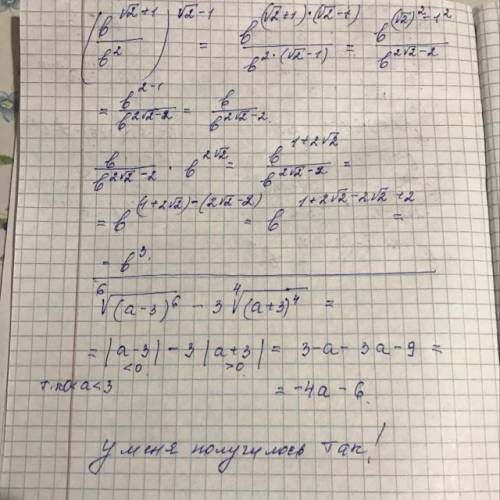 (b^(√2+1) / b^2)^(√2-1) = b^((√2+1)·(√2-1)) / b^(2·(√2-1)) = b^((√2)^2-1^2) / b^(2√2-2)
= b^(2-1) / b^(2√2-2) = b / b^(2√2-2)
b / b^(2√2-2) · b^(2√2) = b^(1+2√2) / b^(2√2-2) =
= b^((1+2√2)-(2√2-2)) = b^(1+2√2-2√2+2) =
= b^3.
⁶√(a-3)^6 - 3 ⁴√(a+3)^4 =
= |a-3| - 3 |a+3| = 3-a-3a-9 =
<0 >0
т.к 0<a<3 = -4a-6
у меня получилось так!